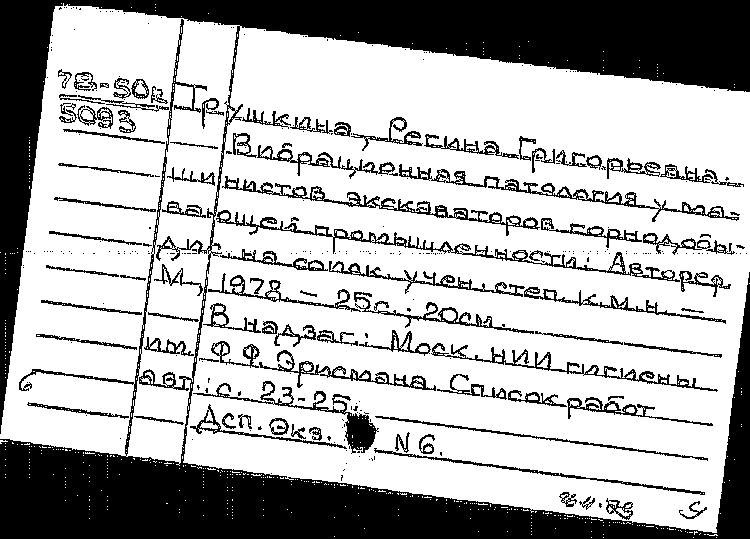 78-50к
5093
Трушкина, Регина Григорьевна.
Вибрационная патология у ма-
шинистов экскаваторов горнодобы-
вающей промышленности: Автореф.
дис. на соиск. учен. степ. к.м.н. —
М., 1978. — 25с.; 20см.
В надзаг.: Моск. НИИ гигиены
им. Ф.Ф. Эрисмана. Список работ
авт.: с. 23-25.
Дсп. Экз. N6.
б